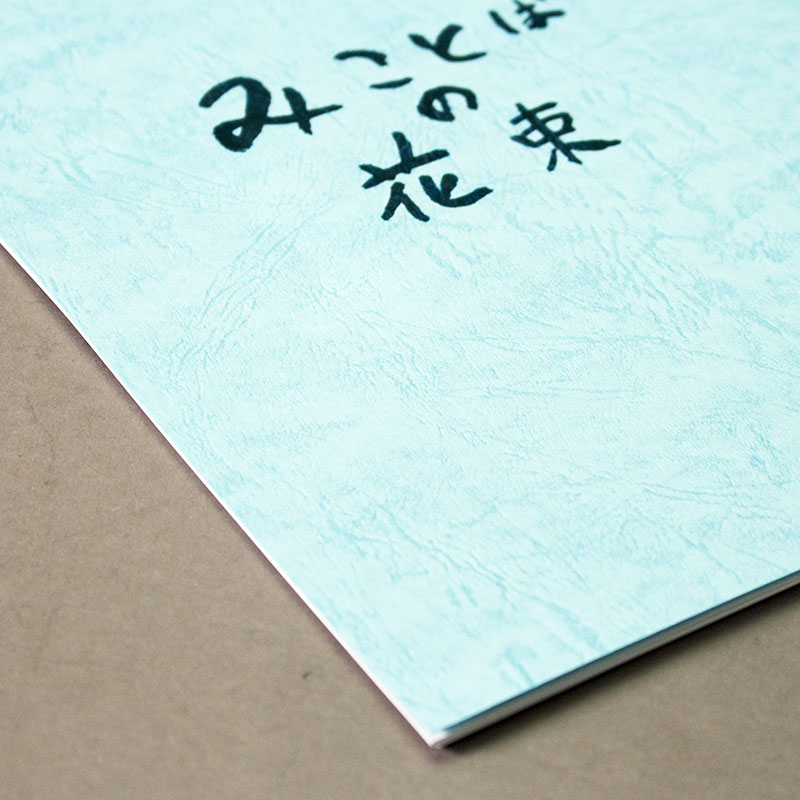 みことば
の
花束